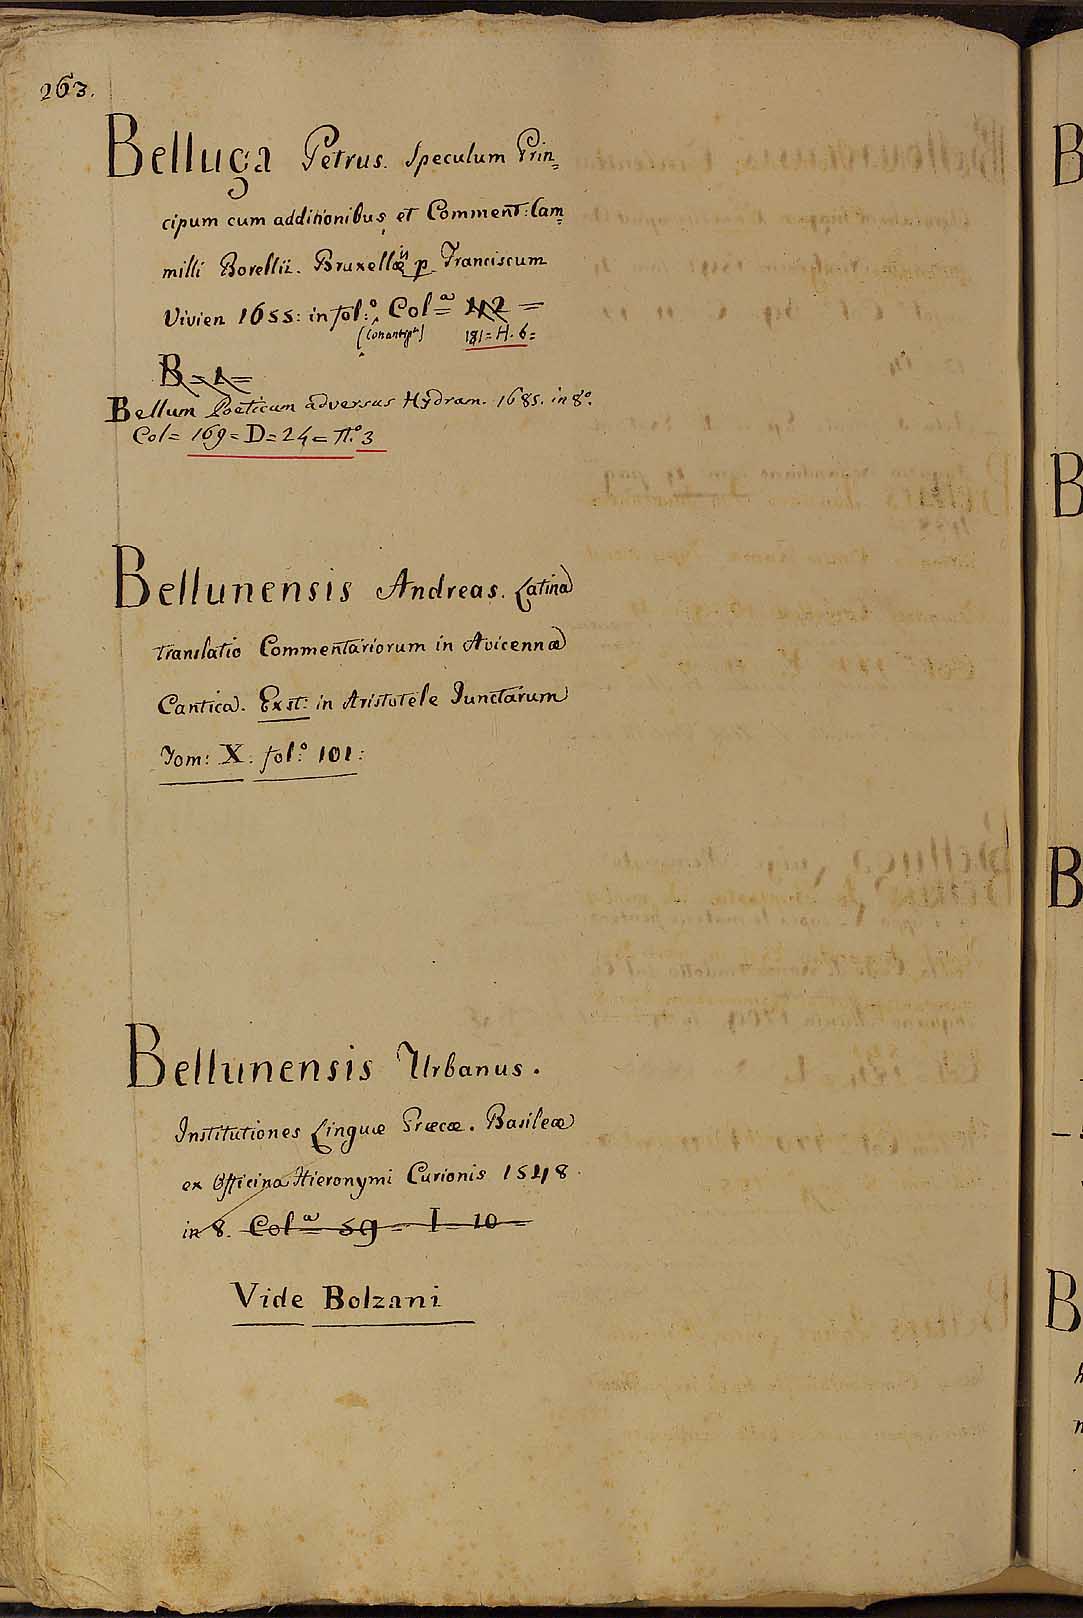 263.
Belluga Petrus. Speculum Prin=
cipum cum additionibus, et Comment: Cam=
milli Borellii. Bruxellæis p Franciscum
Vivien 1655: in fol:º Colª= 42 =
181= H. 6=
B = 1 =
Bellum Poeticum adversus Hydram. 1685. in 8º.
Col= 169= D= 24= n.º 3
Bellunensis Andreas. Latina
translatio Commentariorum in Avicennæ
Cantica. Exst: in Aristotele Junctarum
Tom: X. fol.º 101:
Bellunensis Urbanus.
Institutiones Linguæ Græcæ. Basileæ
ex Officina Hieronymi Curionis 1548.
in 8. Colª= 59= I= 10=
Vide Bolzani
B
B
B
B